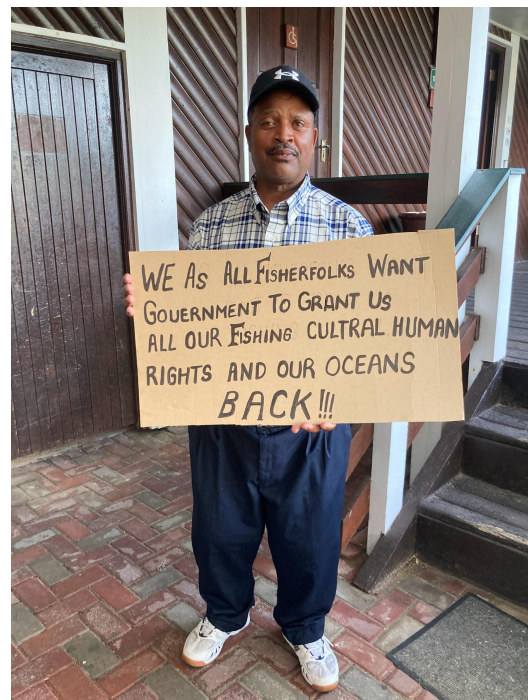 WE AS ALL FISHERFOLKS WANT
GOVERNMENT TO GRANT US
ALL OUR FISHING CULTRAL HUMAN
RIGHTS AND OUR OCEANS
BACK!!!